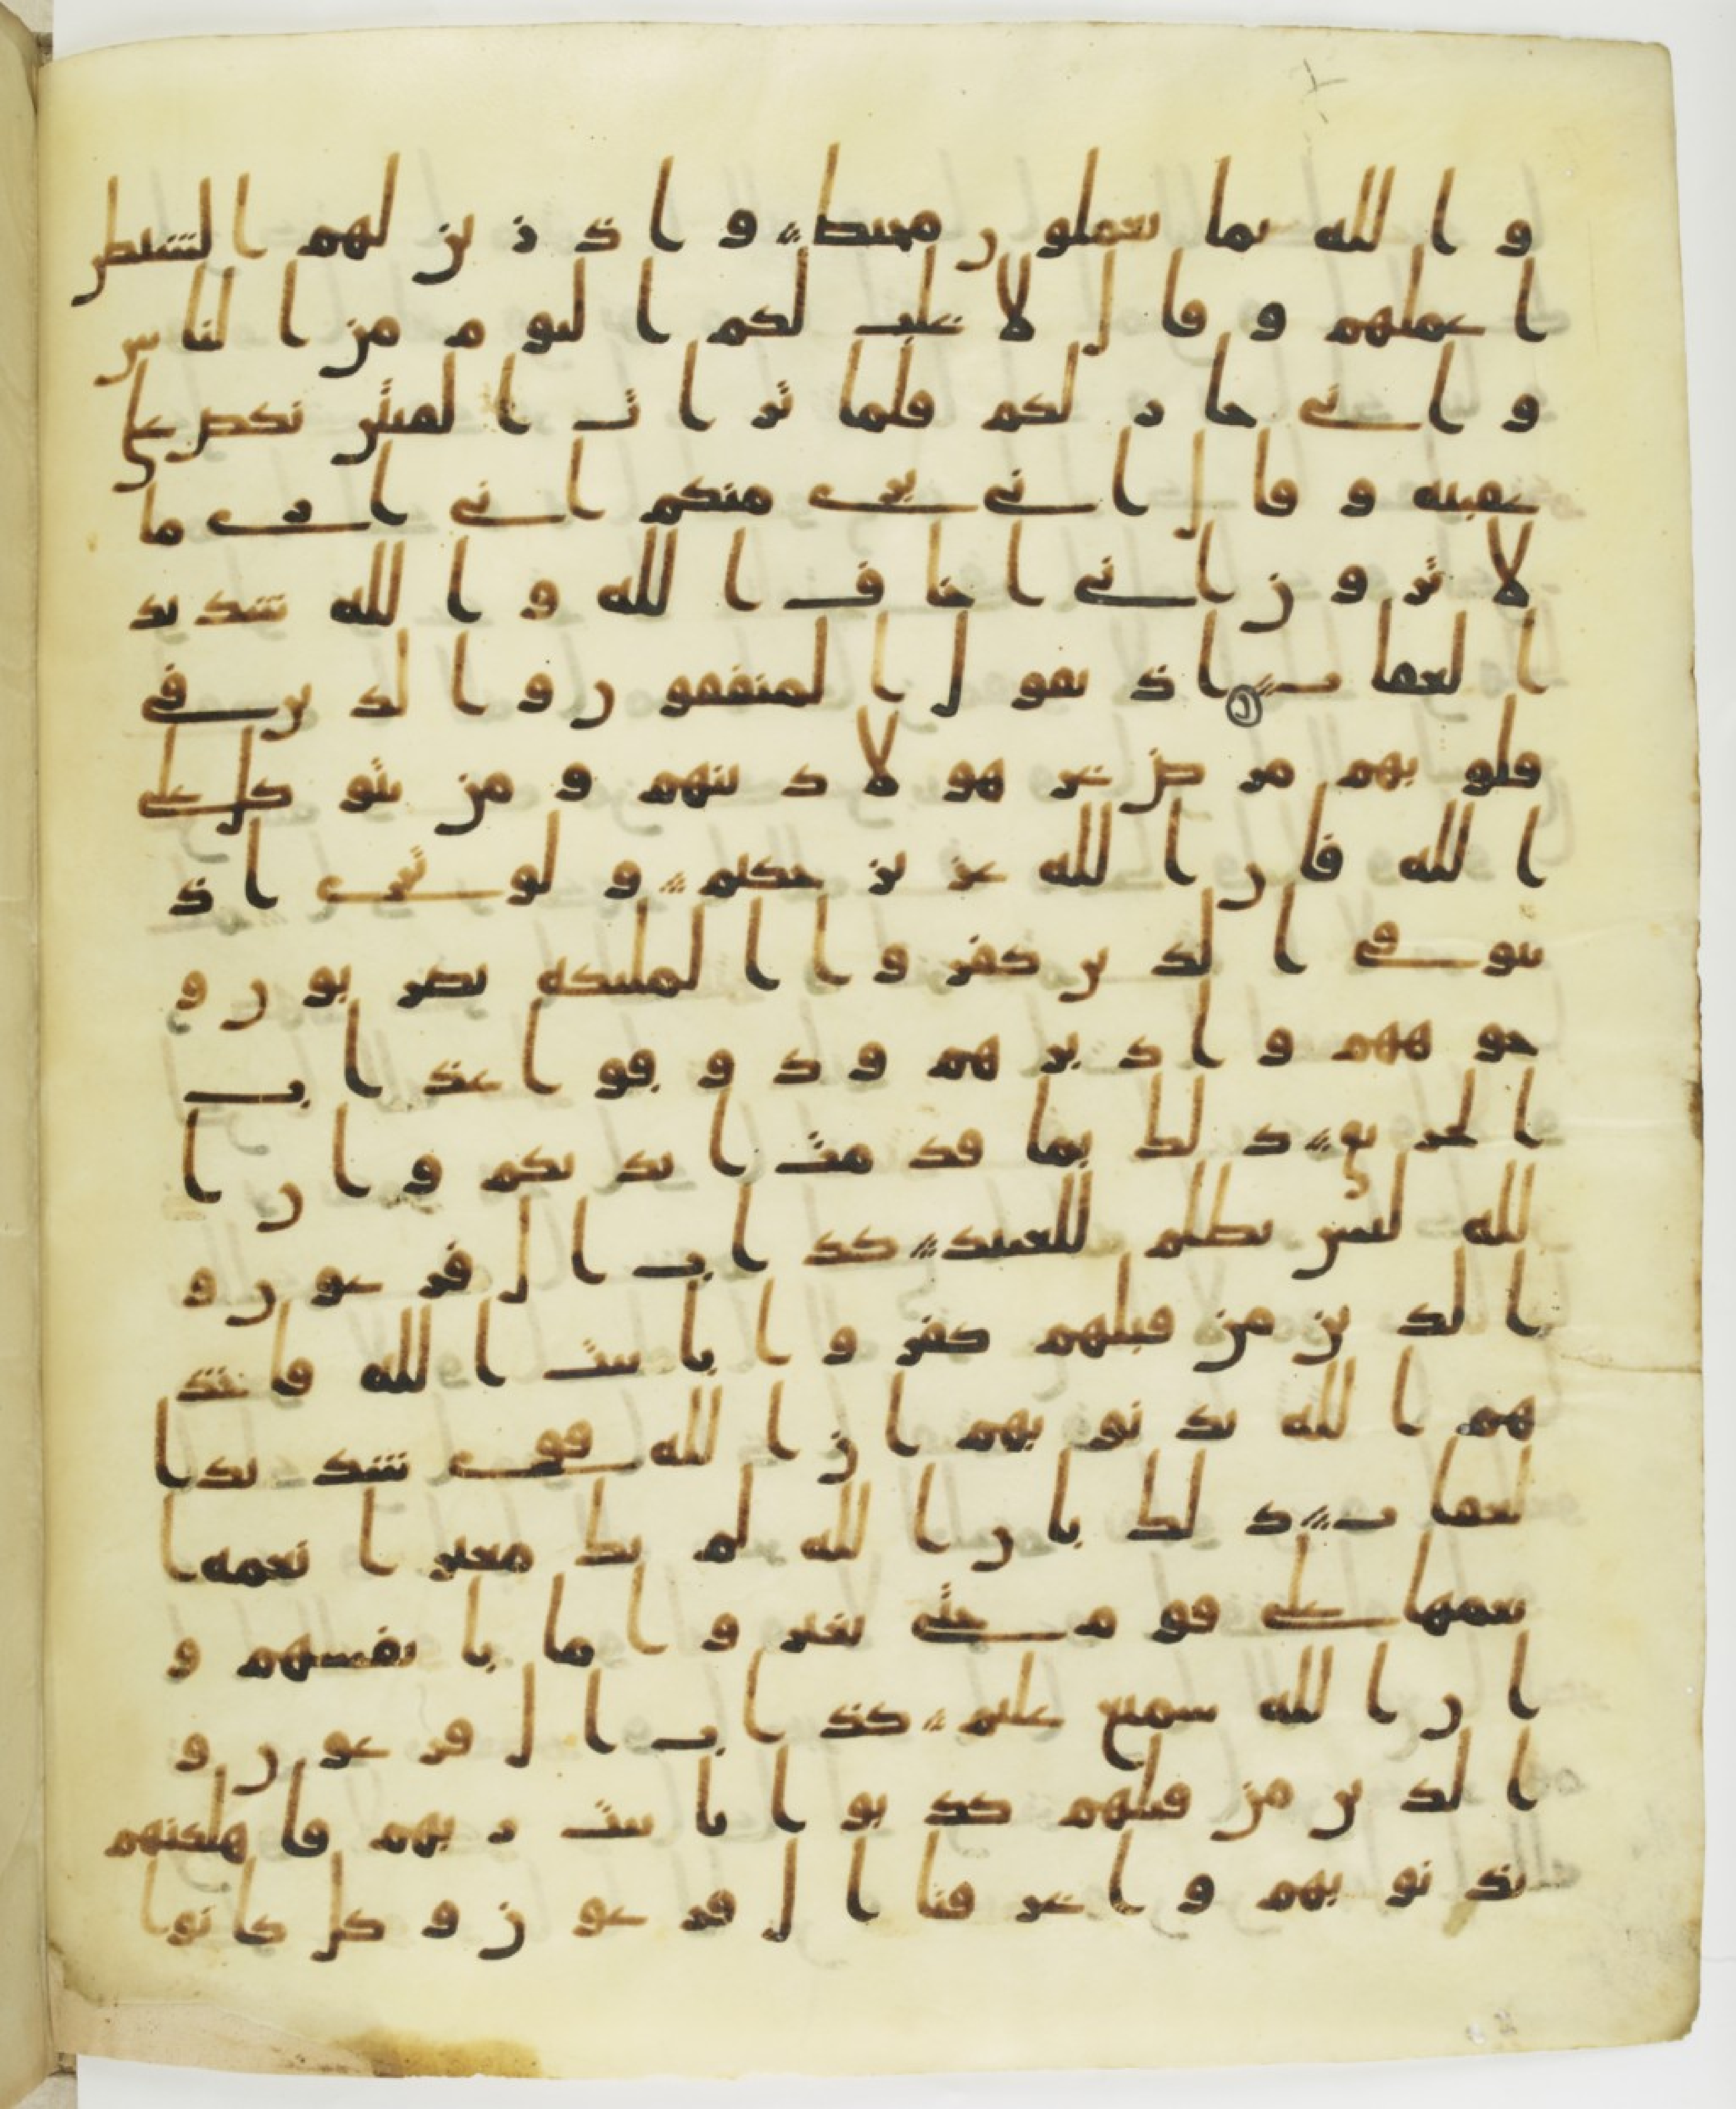 والله بما تعملون محيط واذ زين لهم الشيطن
اعملهم وقال لا غلب لكم اليوم من الناس
واني جار لكم فلما ترات الفئتن نكص على
عقبيه وقال اني بري منكم اني ارى ما
لا ترون اني اخاف الله والله شديد
العقاب اذ يقول المنفقون والذين في
قلوبهم مرض غر هولا دينهم ومن يتوكل على
الله فان الله عزيز حكيم ولو ترى اذ
يتوفى الذين كفروا الملئكة يضربون و
جوههم وادبرهم وذوقوا عذاب
الحريق ذلك بما قدمت ايديكم وان ا
لله ليس بظلم للعبيد كداب ال فرعون و
الذين من قبلهم كفروا باييت الله فاخذ
هم الله بذنوبهم ان الله قوي شديد ا
لعقاب ذلك بان الله لم يك مغيرا نعمة ا
نعمها على قوم حتى يغيروا ما بانفسهم و
ان الله سميع عليم كداب ال فرعون و
الذين من قبلهم كذبوا باييت ربهم فاهلكنهم
بذنوبهم واغرقنا ال فرعون وكل كانوا